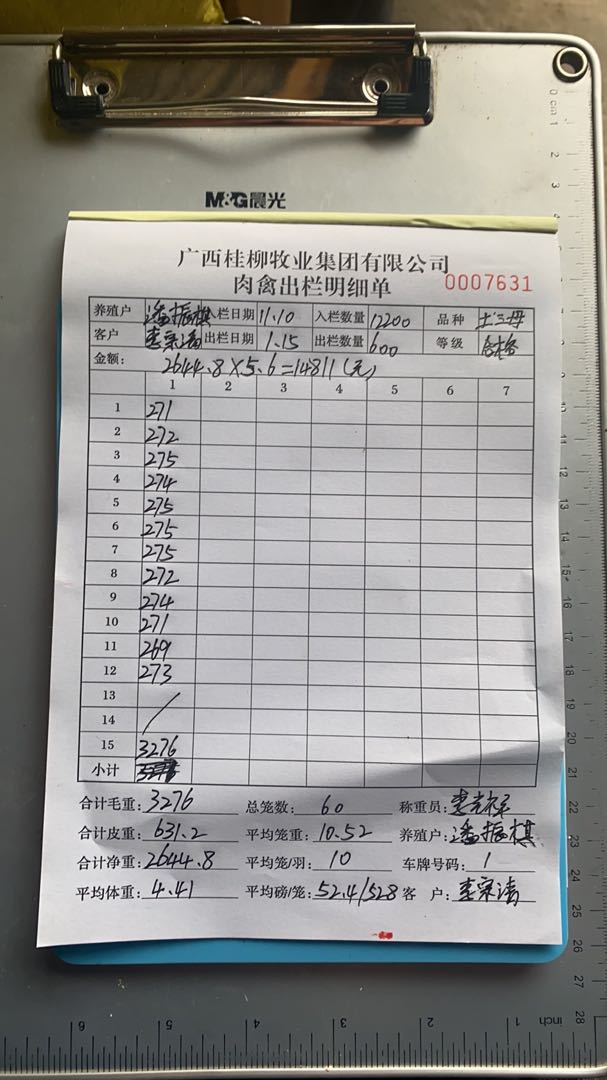 M&G晨光
广西桂柳牧业集团有限公司
肉禽出栏明细单 0007631
养殖户 潘振棋 入栏日期 11.10 入栏数量 12200 品种 土三母
客户 出栏日期 1.15 出栏数量 600 等级 合格
金额: 2644.8×5.6=14811(元)
1 2 3 4 5 6 7
1 271
2 272
3 275
4 274
5 275
6 275
7 275
8 272
9 274
10 271
11 269
12 273
13
14
15 3276
小计
合计毛重: 3276 总笼数: 60 称重员:
合计皮重: 631.2 平均笼重: 10.52 养殖户: 潘振棋
合计净重: 2644.8 平均笼/羽: 10 车牌号码: 1
平均体重: 4.41 平均磅/笼: 52.4/528 客 户:
0 cm 1 2 3 13 14 15 16 17 18 19 20 21 22 23 24 25 26 27 28
6 5 4 3 2 1 inch